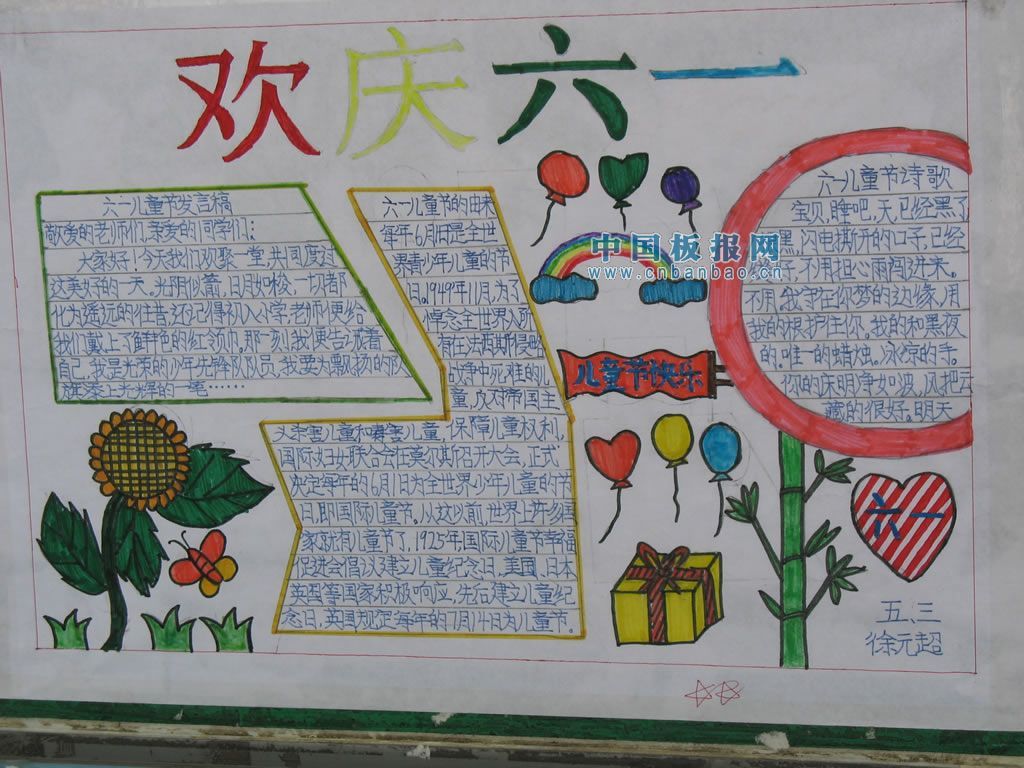 欢庆六一
六一儿童节发言稿
敬爱的老师们,亲爱的同学们:
大家好!今天我们欢聚一堂,共同度过
这美好的一天。光阴似箭,日月如梭,一切都
化为遥远的往昔,还记得初入小学,老师便给
我们戴上了鲜艳的红领巾。那一刻我便告诉着
自己,我是光荣的少年先锋队队员,我要为飘扬的队
旗添上光辉的一笔……
六一儿童节的由来
每年6月1日是全世
界青少年儿童的节
日。1949年11月,为了
悼念全世界人所
有在法西斯侵略
战争中死难的儿
童,反对帝国主
义杀害儿童和毒害儿童,保障儿童权利,
国际妇女联合会在莫尔斯召开大会,正式
决定每年的6月1日为全世界少年儿童的节
日,即国际儿童节。从这以前,世界上许多国
家就有儿童节了,1925年,国际儿童节幸福
促进会倡议建立儿童纪念日,美国、日本
英国等国家积极响应,先后建立儿童纪
念日,英国规定每年的7月14日为儿童节。
中国板报网
www.cnbanbao.cn
儿童节快乐
六一儿童节诗歌
宝贝,睡吧,天,已经黑了
黑,闪电撕开的口子,已经
子,不用担心雨闯进来。
不用。我守在你梦的边缘,用
我的根护住你。我的和黑夜
的,唯一的蜡烛。冰凉的手。
你的床明净如波,风把云
藏的很好。明天
六一
五、三
徐元超